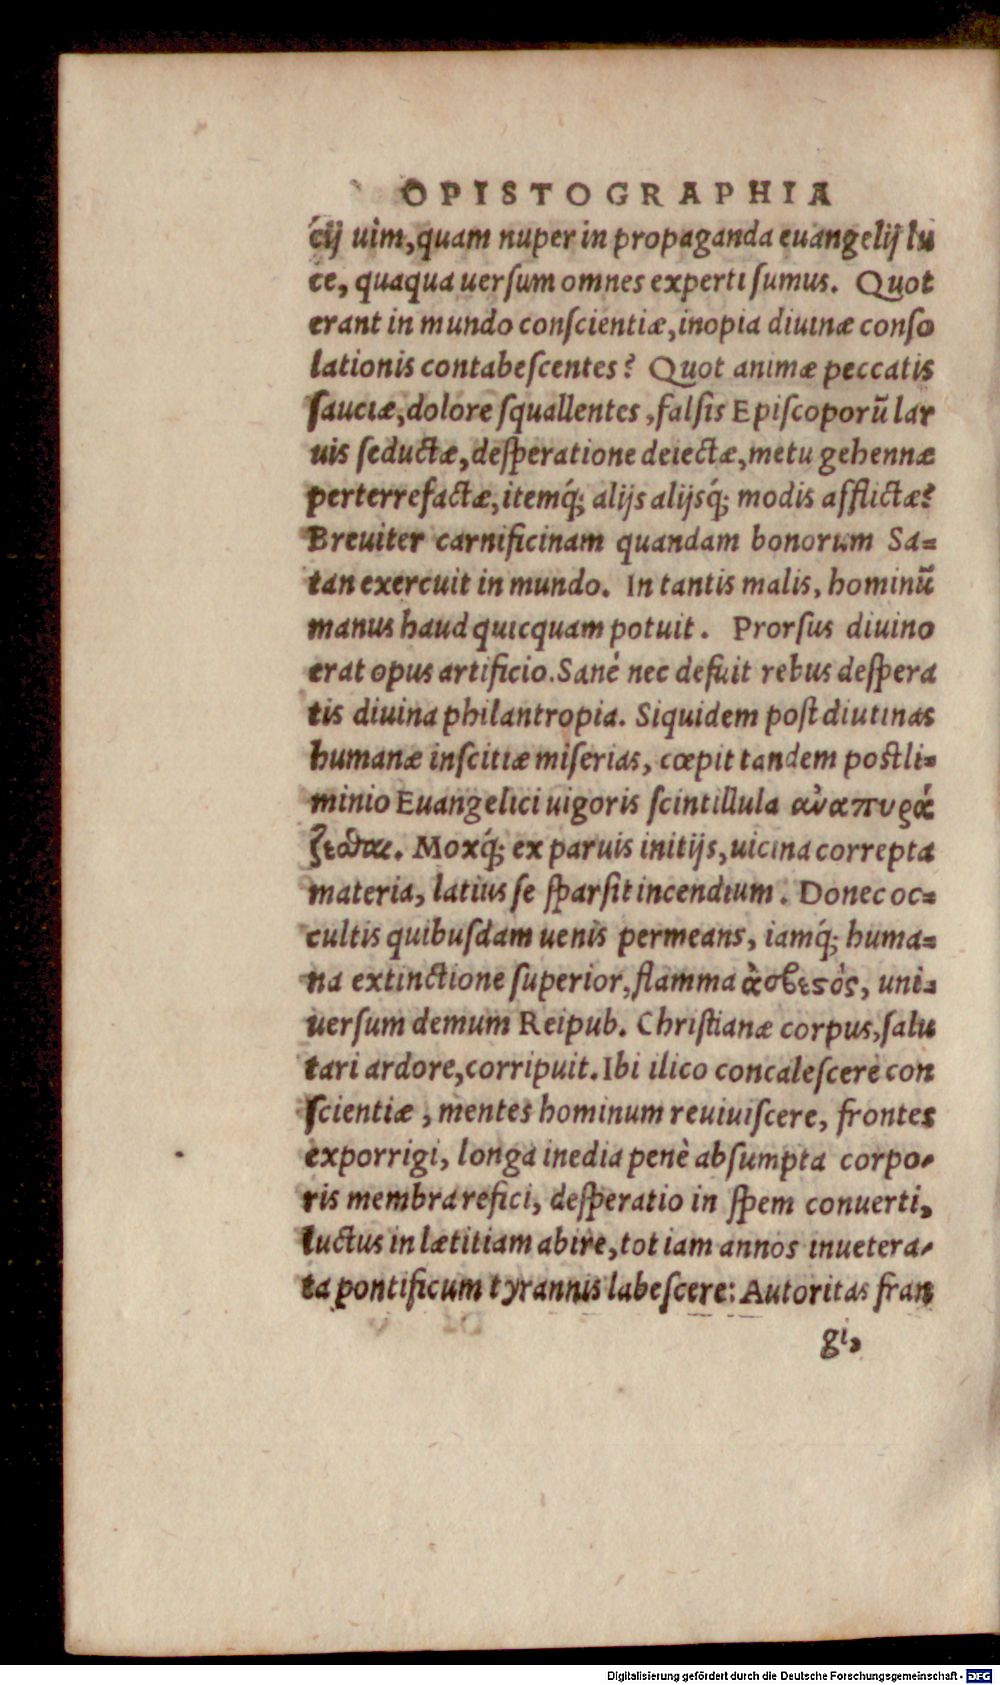 OPISTOGRAPHIA
cij uim, quam nuper in propaganda euangelij lu
ce, quaqua uerſum omnes experti ſumus. Quot
erant in mundo conſcientiæ, inopia diuinæ conſo
lationis contabeſcentes? Quot animæ peccatis
ſauciæ, dolore ſquallentes, falſis Epiſcoporũ lar
uis ſeductæ, deſperatione deiectæ, metu gehennæ
perterrefactæ, itemq́; alijs alijsq́; modis afflictæ?
Breuiter carnificinam quandam bonorum Sa=
tan exercuit in mundo. In tantis malis, hominũ
manus haud quicquam potuit. Prorſus diuino
erat opus artificio. Sanè nec defuit rebus deſpera
tis diuina philantropia. Siquidem poſt diutinas
humanæ inſcitiæ miſerias, cœpit tandem poſtli=
minio Euangelici uigoris ſcintillula ἀναπυρά
ζεσθαι. Moxq́; ex paruis initijs, uicina correpta
materia, latius ſe ſparſit incendium. Donec oc=
cultis quibuſdam uenis permeans, iamq́; huma=
na extinctione ſuperior, flamma ἀσβεστός, uni=
uerſum demum Reipub. Chriſtianæ corpus, ſalu
tari ardore, corripuit. Ibi ilico concaleſcere con
ſcientiæ, mentes hominum reuiuiſcere, frontes
exporrigi, longa inedia penè abſumpta corpo=
ris membra refici, deſperatio in ſpem conuerti,
luctus in lætitiam abire, tot iam annos inuetera=
ta pontificum tyrannis labeſcere: Autoritas fran
gi,
Digitalisierung gefördert durch die Deutsche Forschungsgemeinschaft - DFG